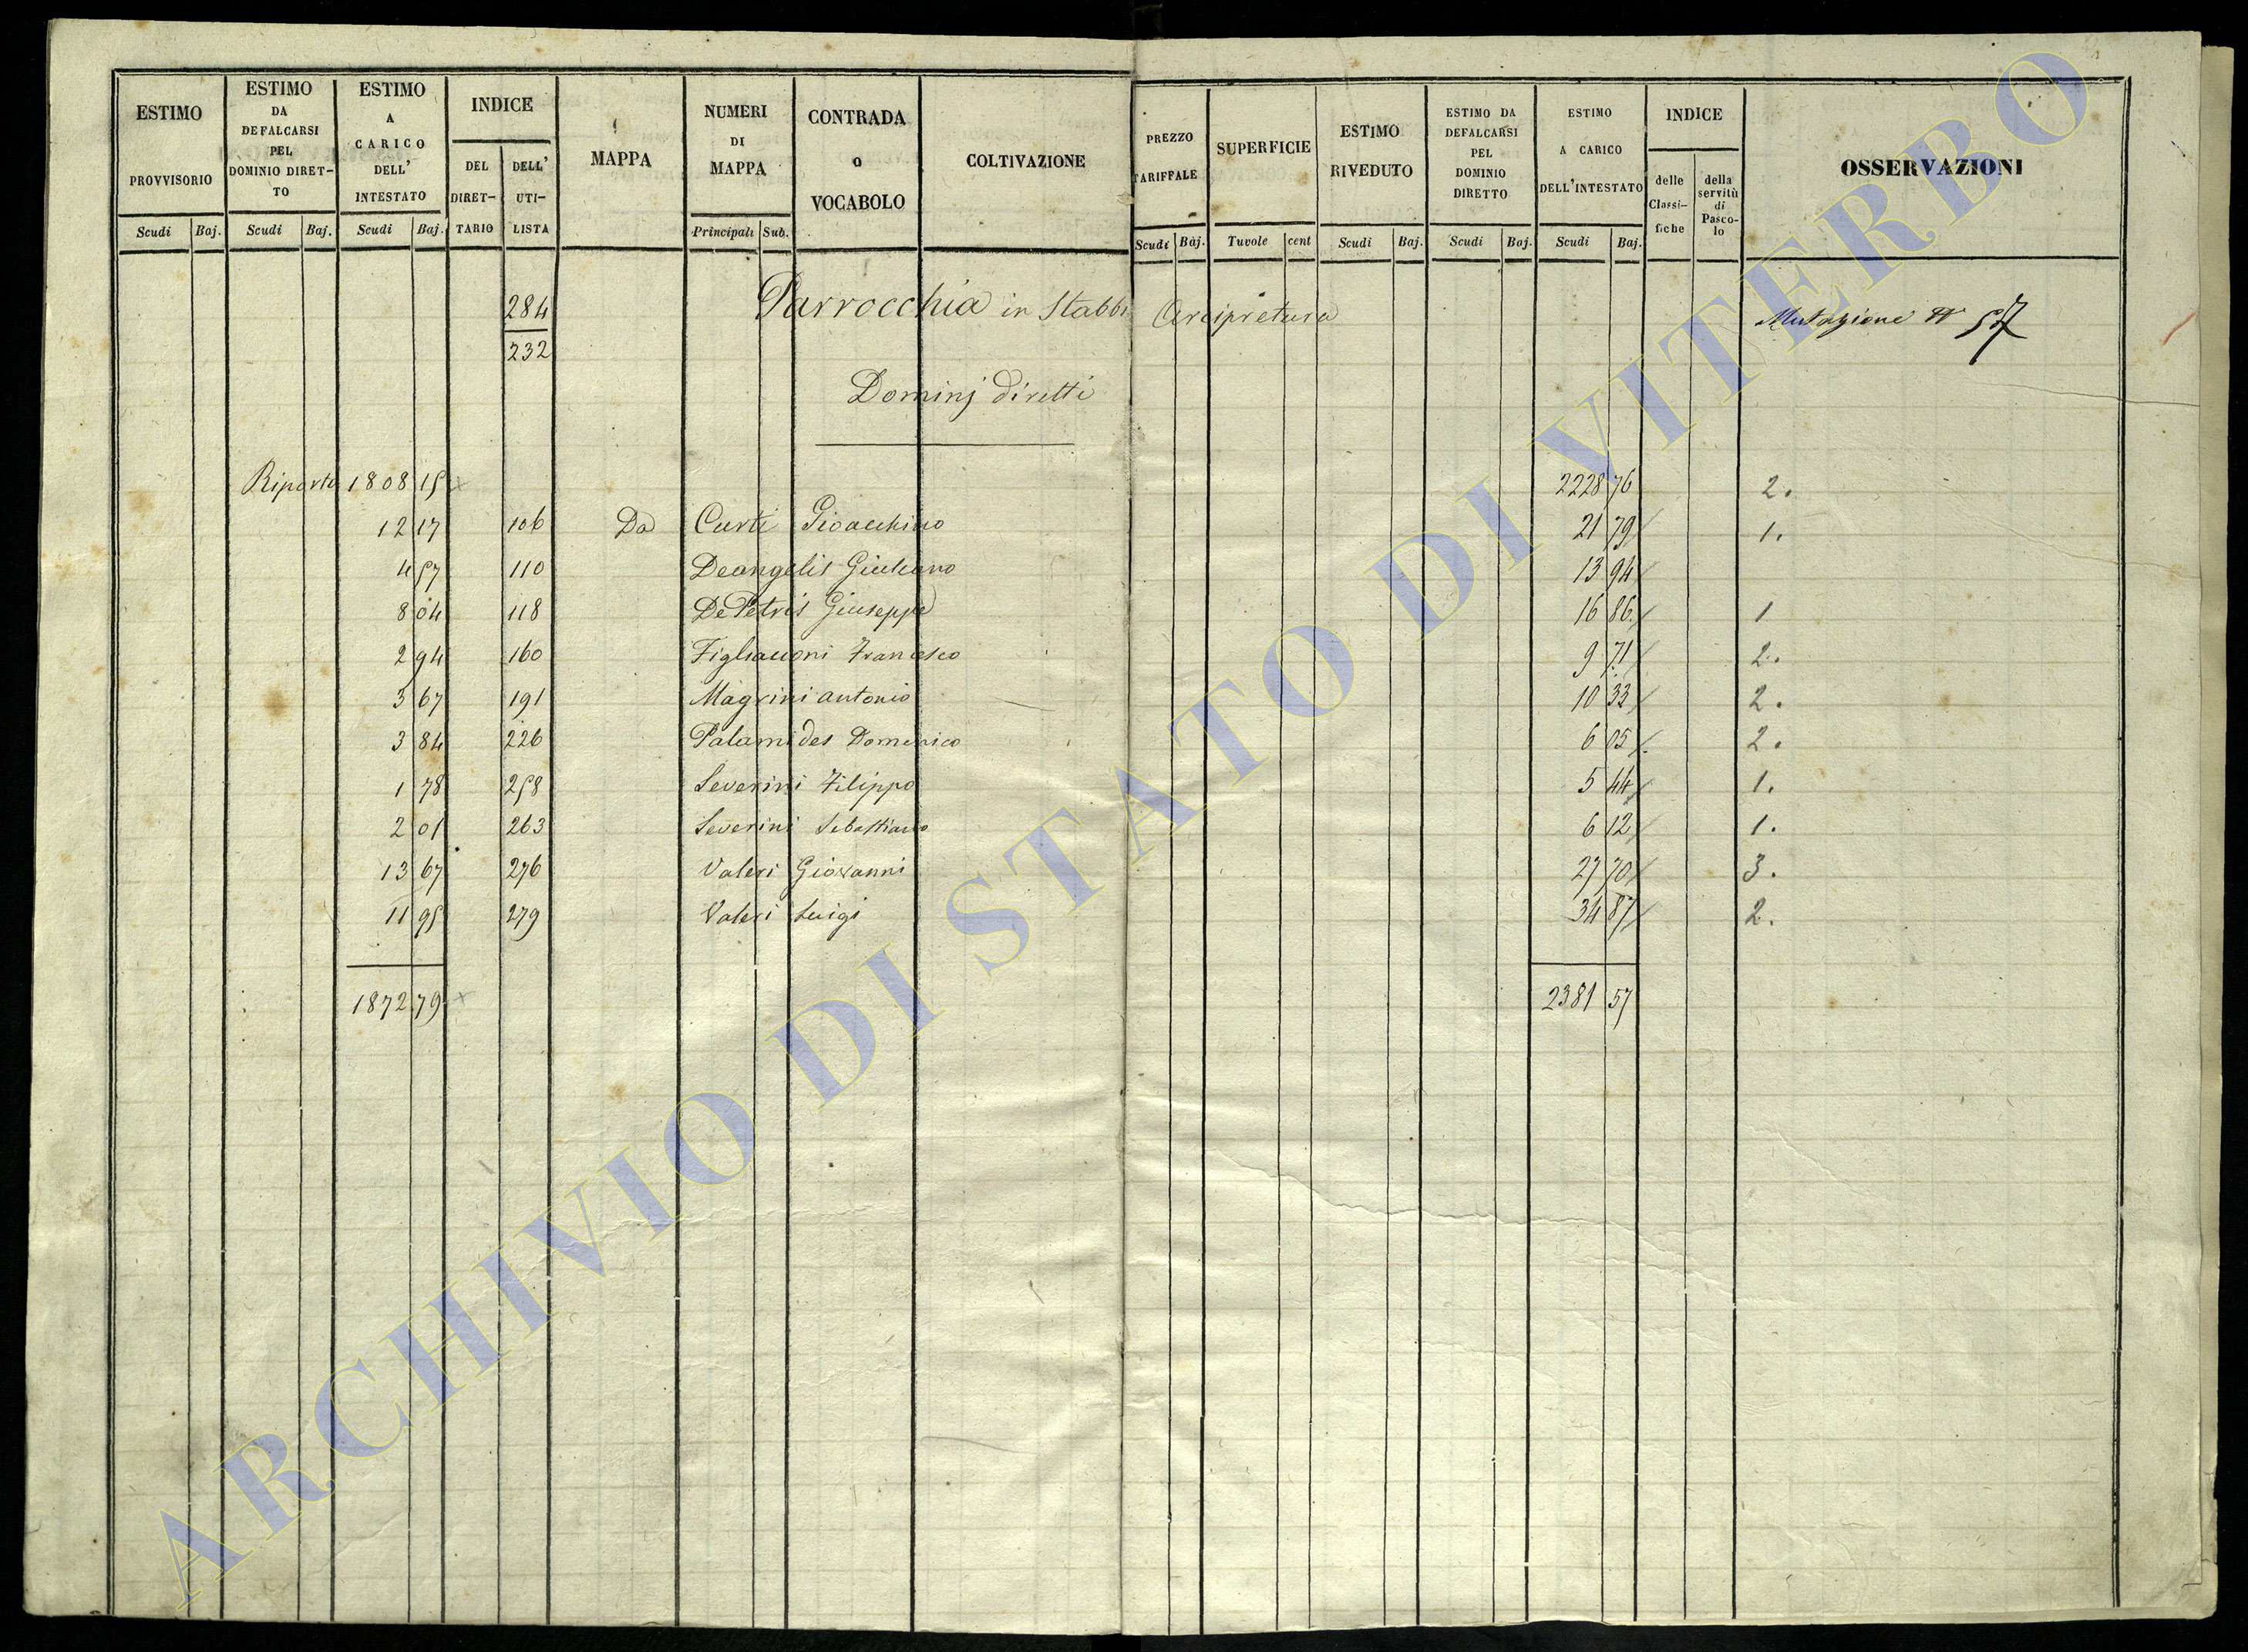 ESTIMO PROVVISORIO | ESTIMO DA DEFALCARSI PEL DOMINIO DIRET-TO | ESTIMO A CARICO DELL' INTESTATO | INDICE | MAPPA | NUMERI DI MAPPA | CONTRADA O VOCABOLO | COLTIVAZIONE | PREZZO TARIFFALE | SUPERFICIE | ESTIMO RIVEDUTO | ESTIMO DA DEFALCARSI PEL DOMINIO DIRETTO | ESTIMO A CARICO DELL'INTESTATO | INDICE | OSSERVAZIONI
DEL DIRET-TARIO | DELL' UTI-LISTA | delle Classi-fiche | della servitù di Pasco-lo
Scudi | Baj. | Scudi | Baj. | Scudi | Baj. | Principali | Sub. | Scudi | Baj. | Tavole | cent | Scudi | Baj. | Scudi | Baj. | Scudi | Baj.
284 Parrocchia in Stabbi Arcipretura Mutazione N 57
232
Dominj diretti
Riporto 1808 15 2228 76 2.
12 17 106 Da Curti Gioacchino 21 79 1.
4 57 110 Deangelis Giuliano 13 94
8 04 118 De Petris Giuseppe 16 86 1
2 94 160 Figliacconi Francesco 9 71 2.
3 67 191 Magrini Antonio 10 33 2.
3 84 226 Palamides Domenico 6 05 2.
1 78 258 Severini Filippo 5 44 1.
2 01 263 Severini Sebastiano 6 12 1.
13 67 276 Valeri Giovanni 27 70 3.
11 95 279 Valeri Luigi 34 87 2.
1872 79 2381 57
ARCHIVIO DI STATO DI VITERBO